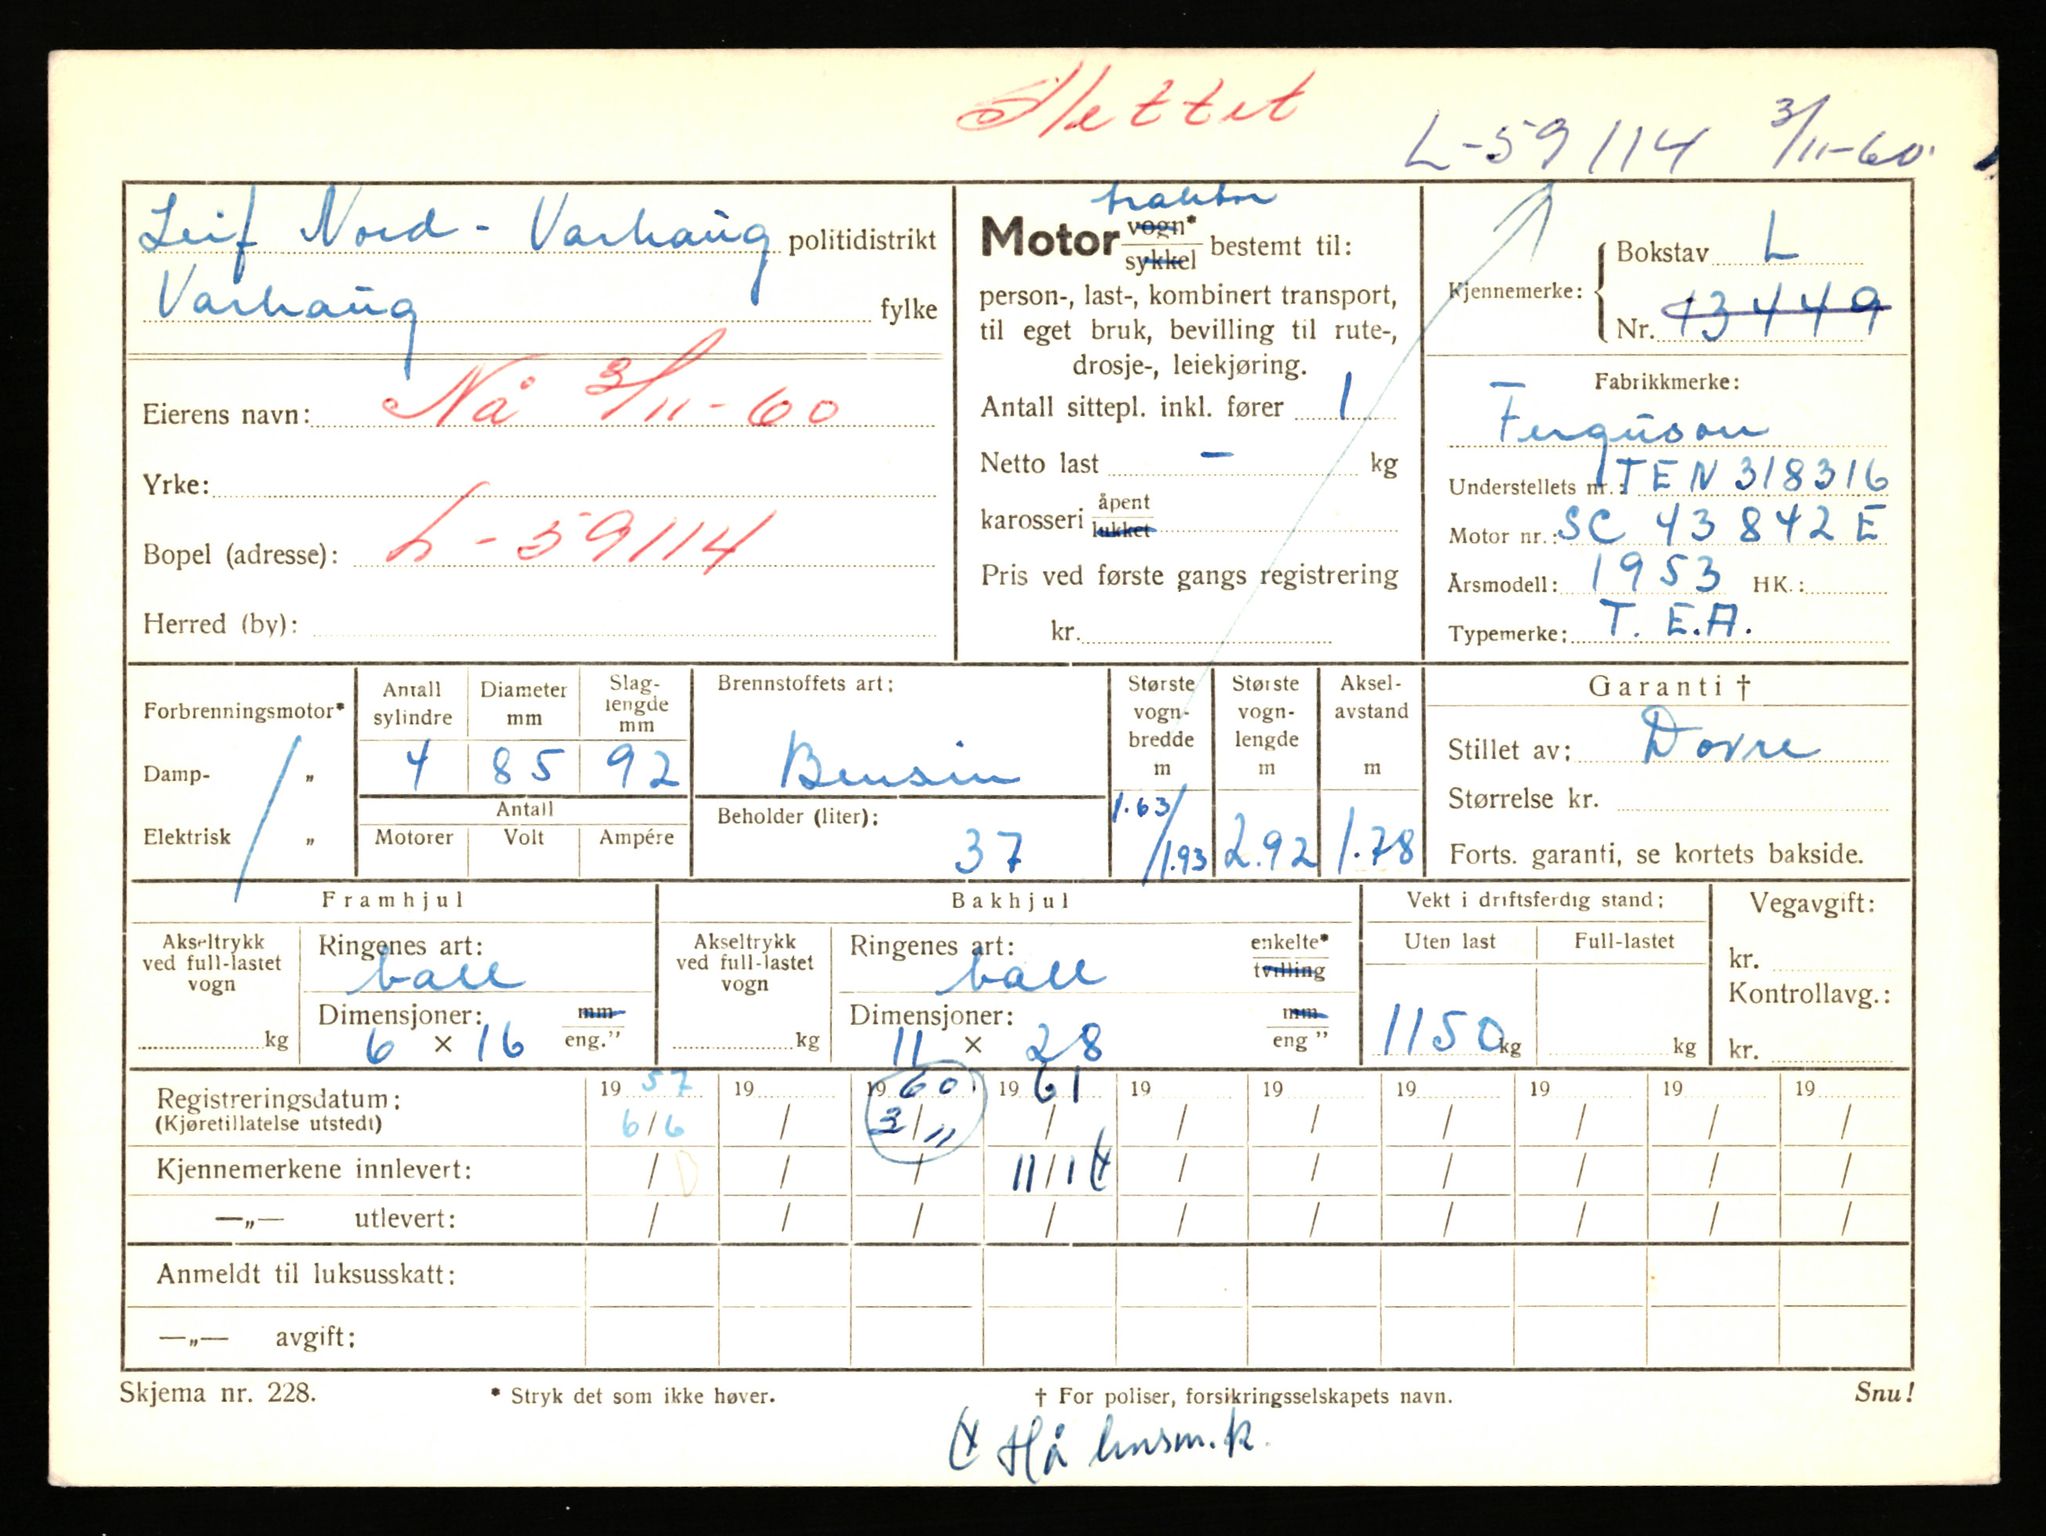 Slettet
L-59114 3/11-60.
Leif Nord-Varhaug politidistrikt
Varhaug fylke
Eierens navn: Nå 3/11-60
Yrke:
Bopel (adresse): L-59114
Herred (by):
traktor
Motor vogn* sykkel bestemt til:
person-, last-, kombinert transport,
til eget bruk, bevilling til rute-,
drosje-, leiekjøring.
Antall sittepl. inkl. fører 1
Netto last – kg
karosseri åpent lukket
Pris ved første gangs registrering
kr.
Kjennemerke: Bokstav L
Nr. 13449
Fabrikkmerke:
Ferguson
Understellets nr.: TEN 318316
Motor nr.: SC 43 842 E
Årsmodell: 1953 HK.:
Typemerke: T. E.A.
Forbrenningsmotor*
Damp- „
Elektrisk „
Antall sylindre 4
Diameter mm 85
Slaglengde mm 92
Antall
Motorer Volt Ampére
Brennstoffets art:
Bensin
Beholder (liter):
37
Største vognbredde m 1.63/1.93
Største vognlengde m 2.92
Akselavstand m 1.78
Garanti †
Stillet av: Dovre
Størrelse kr.
Forts. garanti, se kortets bakside.
Framhjul
Akseltrykk ved full-lastet vogn kg
Ringenes art:
ball
Dimensjoner: mm
6 × 16 eng.”
Bakhjul
Akseltrykk ved full-lastet vogn kg
Ringenes art: enkelte*
ball tvilling
Dimensjoner: mm
11 × 28 eng ”
Vekt i driftsferdig stand:
Uten last Full-lastet
1150 kg kg
Vegavgift:
kr.
Kontrollavg.:
kr.
Registreringsdatum: 19 57 19 19 60. 19 61 19 19 19 19 19 19
(Kjøretillatelse utstedt) 6/6 / 3/11 / / / / / / /
Kjennemerkene innlevert: / / / 11/1 (x / / / / / /
—„— utlevert: / / / / / / / / / /
Anmeldt til luksusskatt:
—„— avgift:
Skjema nr. 228. * Stryk det som ikke høver. † For poliser, forsikringsselskapets navn. Snu!
(x Hå lensm.k.